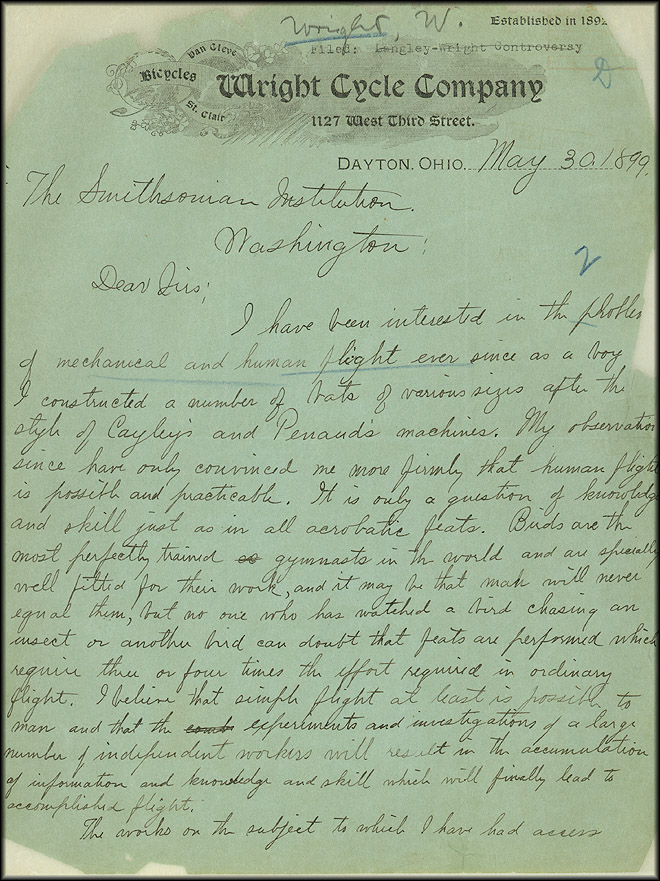 Wright, W.
Established in 189
Filed: Langley-Wright Controversy
2
Van Cleve
Bicycles
St. Clair
Wright Cycle Company
1127 West Third Street.
DAYTON, OHIO. May 30, 1899.
The Smithsonian Institution.
Washington;
Dear Sirs;
2
I have been interested in the problem
of mechanical and human flight ever since as a boy
I constructed a number of bats of various sizes after the
style of Cayley's and Penaud's machines. My observations
since have only convinced me more firmly that human flight
is possible and practicable. It is only a question of knowledge
and skill just as in all acrobatic feats. Birds are the
most perfectly trained gymnasts in the world and are specially
well fitted for their work, and it may be that man will never
equal them, but no one who has watched a bird chasing an
insect or another bird can doubt that feats are performed which
require three or four times the effort required in ordinary
flight. I believe that simple flight at least is possible to
man and that the experiments and investigations of a large
number of independent workers will result in the accumulation
of information and knowledge and skill which will finally lead to
accomplished flight.
The works on the subject to which I have had access